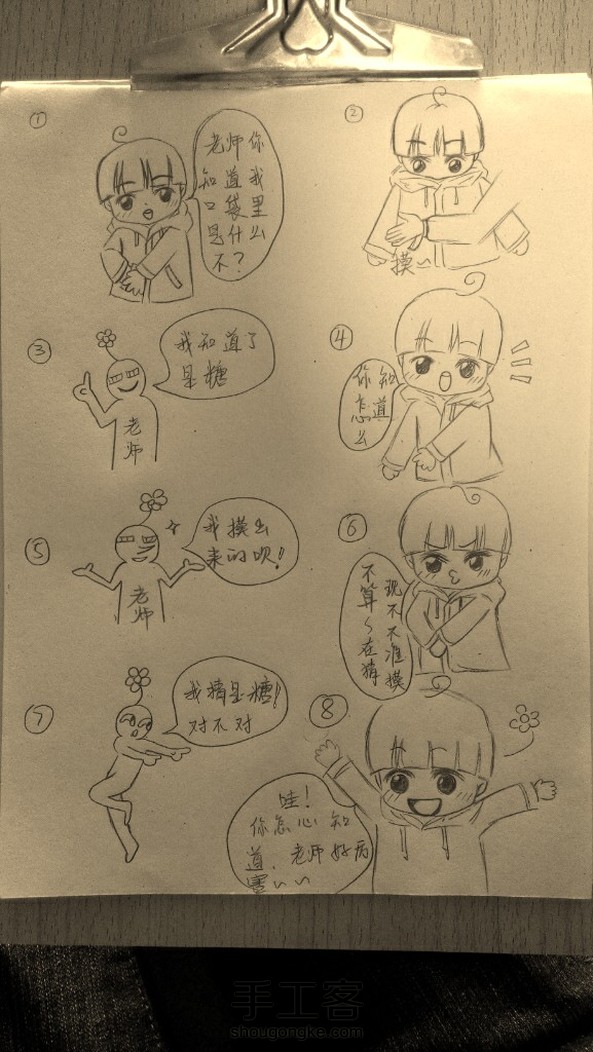 ①
老师你
知道我
口袋里
是什么
不？
②
摸~
③
我知道了
是糖
老
师
④
你怎么
知道
⑤
我摸出
来的呗!
老
师
⑥
不算~在猜
现不不准摸
⑦
我猜是糖!
对不对
⑧
哇!
你怎心知
道，老师好厉
害~~
手工客
shougongke.com